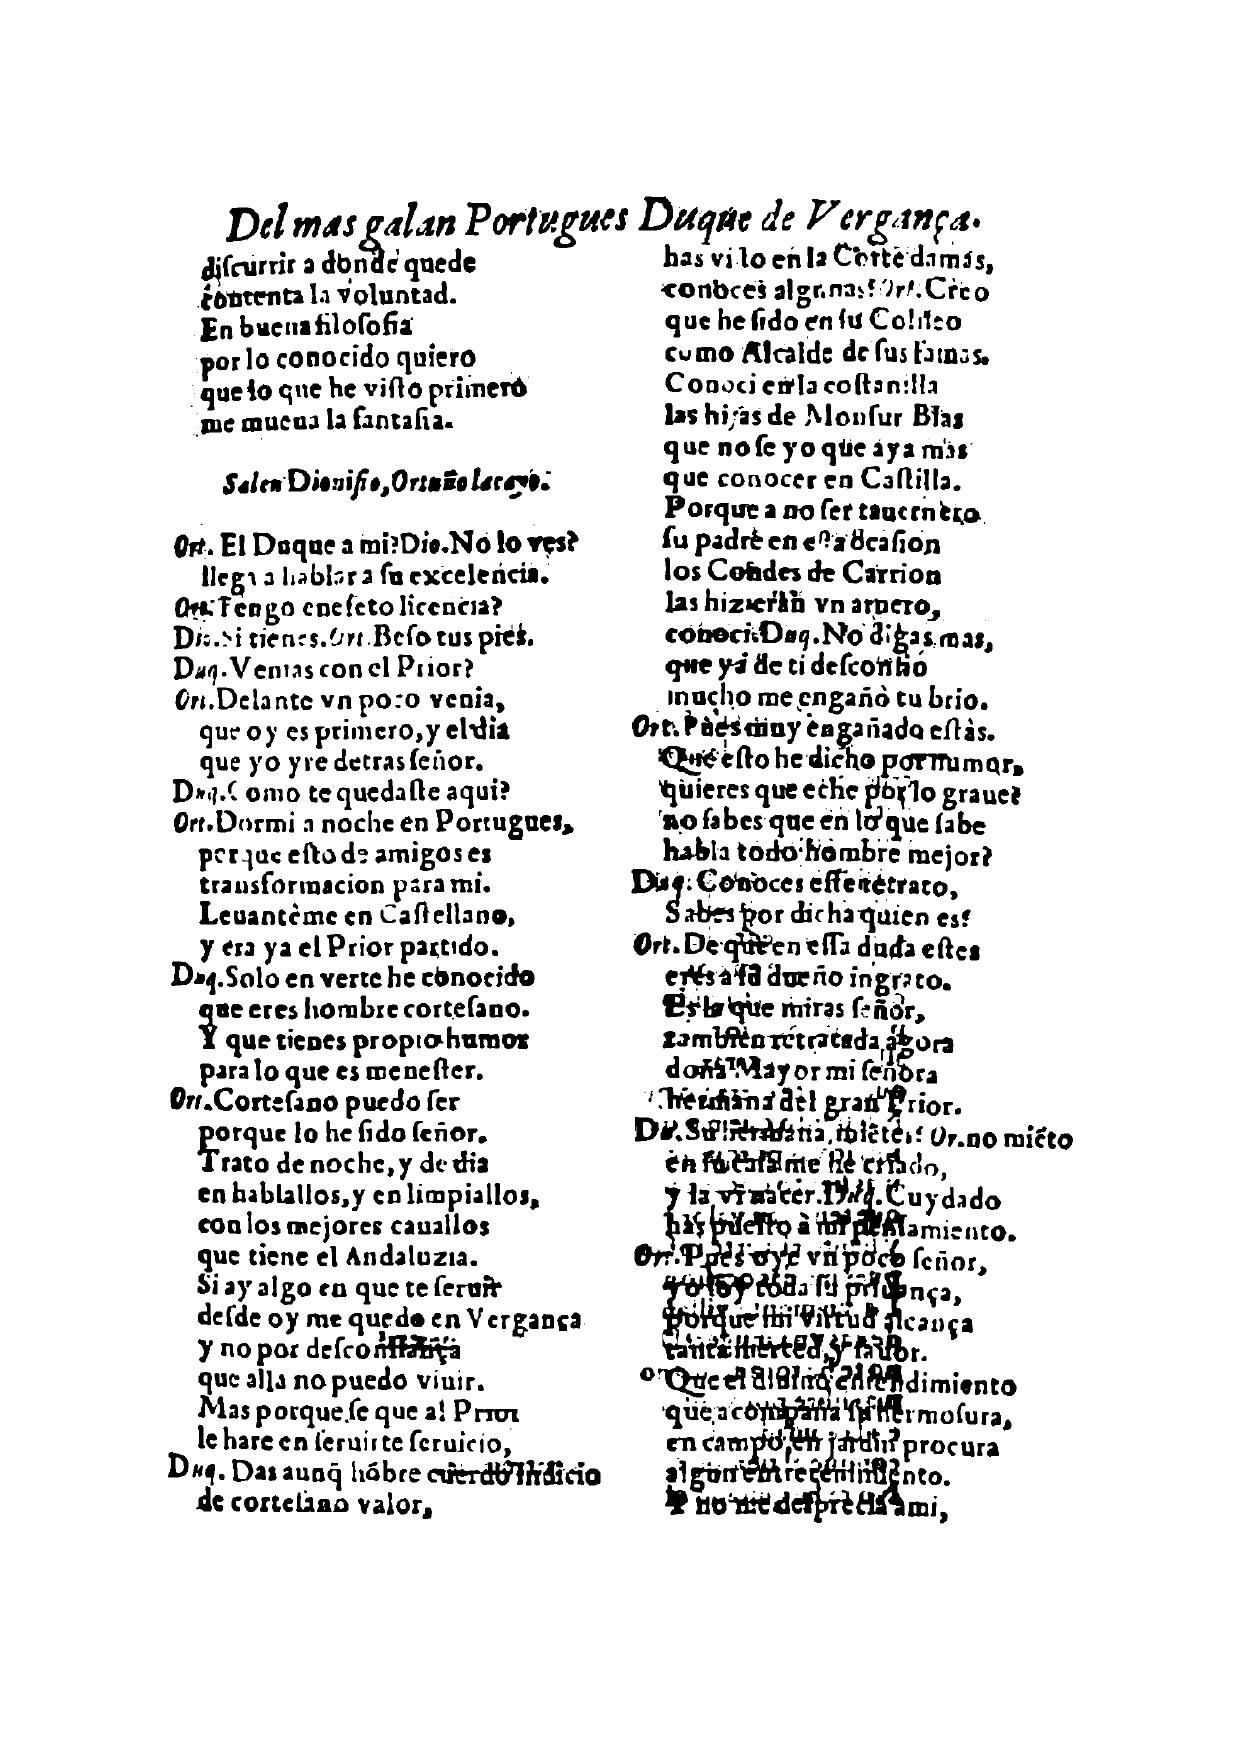 Del mas galan Portugues Duque de Vergança.
discurrir a donde quede
contenta la voluntad.
En buena filosofia
por lo conocido quiero
que lo que he visto primero
me mueua la fantasia.
Salen Dionisio, Ortuño lacayo.
Ort. El Duque a mi? Dio. No lo ves?
llega a hablar a su excelencia.
Ort. Tengo en efeto licencia?
Dio. Si tienes. Ort. Beso tus pies.
Duq. Venias con el Prior?
Ort. Delante vn poco venia,
que oy es primero, y el dia
que yo yre detras señor.
Duq. Como te quedaste aqui?
Ort. Dormi a noche en Portugues,
porque esto de amigos es
transformacion para mi.
Leuantème en Castellano,
y era ya el Prior partido.
Duq. Solo en verte he conocido
que eres hombre cortesano.
Y que tienes propio humor
para lo que es menester.
Ort. Cortesano puedo ser
porque lo he sido señor.
Trato de noche, y de dia
en hablallos, y en limpiallos,
con los mejores cauallos
que tiene el Andaluzia.
Si ay algo en que te seruir
desde oy me quedo en Vergança
y no por desconfiança
que alla no puedo viuir.
Mas porque se que al Prior
le hare en seruirte seruicio,
Duq. Das aunq̃ hõbre cuerdo indicio
de cortesano valor,
has visto en la Corte damas,
conoces algunas? Ort. Creo
que he sido en su Coliseo
como Alcalde de sus famas.
Conoci en la costanilla
las hijas de Monsur Blas
que no se yo que aya mas
que conocer en Castilla.
Porque a no ser tauernero
su padre en esta ocasion
los Condes de Carrion
las hizieran vn arnero,
conoci. Duq. No digas mas,
que ya de ti desconfio
mucho me engañò tu brio.
Ort. Pues muy engañado estàs.
Que esto he dicho por humor,
quieres que eche por lo graue?
no sabes que en lo que sabe
habla todo hombre mejor?
Duq. Conoces esse retrato,
Sabes por dicha quien es?
Ort. De que en essa duda estes
eres a su dueño ingrato.
Es la que miras señor,
tambien retratada agora
doña Mayor mi señora
hermana del gran Prior.
Du. Su hermana, mientes? Or. no miẽto
en su casa me he criado,
y la vi nacer. Duq. Cuydado
has puesto à mi pensamiento.
Ort. Pues oye vn poco señor,
yo soy toda su priuança,
porque mi virtud alcança
tanta merced, y fauor.
Que el diuino entendimiento
que acompaña su hermosura,
en campo, en jardin procura
algun entretenimiento.
Y no me desprecia a mi,